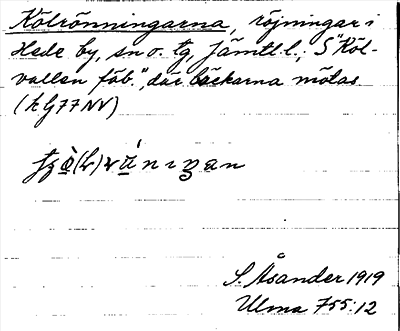 Kölrönningarna, röjningar i
Hede by, sn o. tg, Jämtl. l.; S "Köl-
vallen fäb.", där bäckarna mötas
(h G77 NV)
S. Åsander 1919
Ulma 755:12